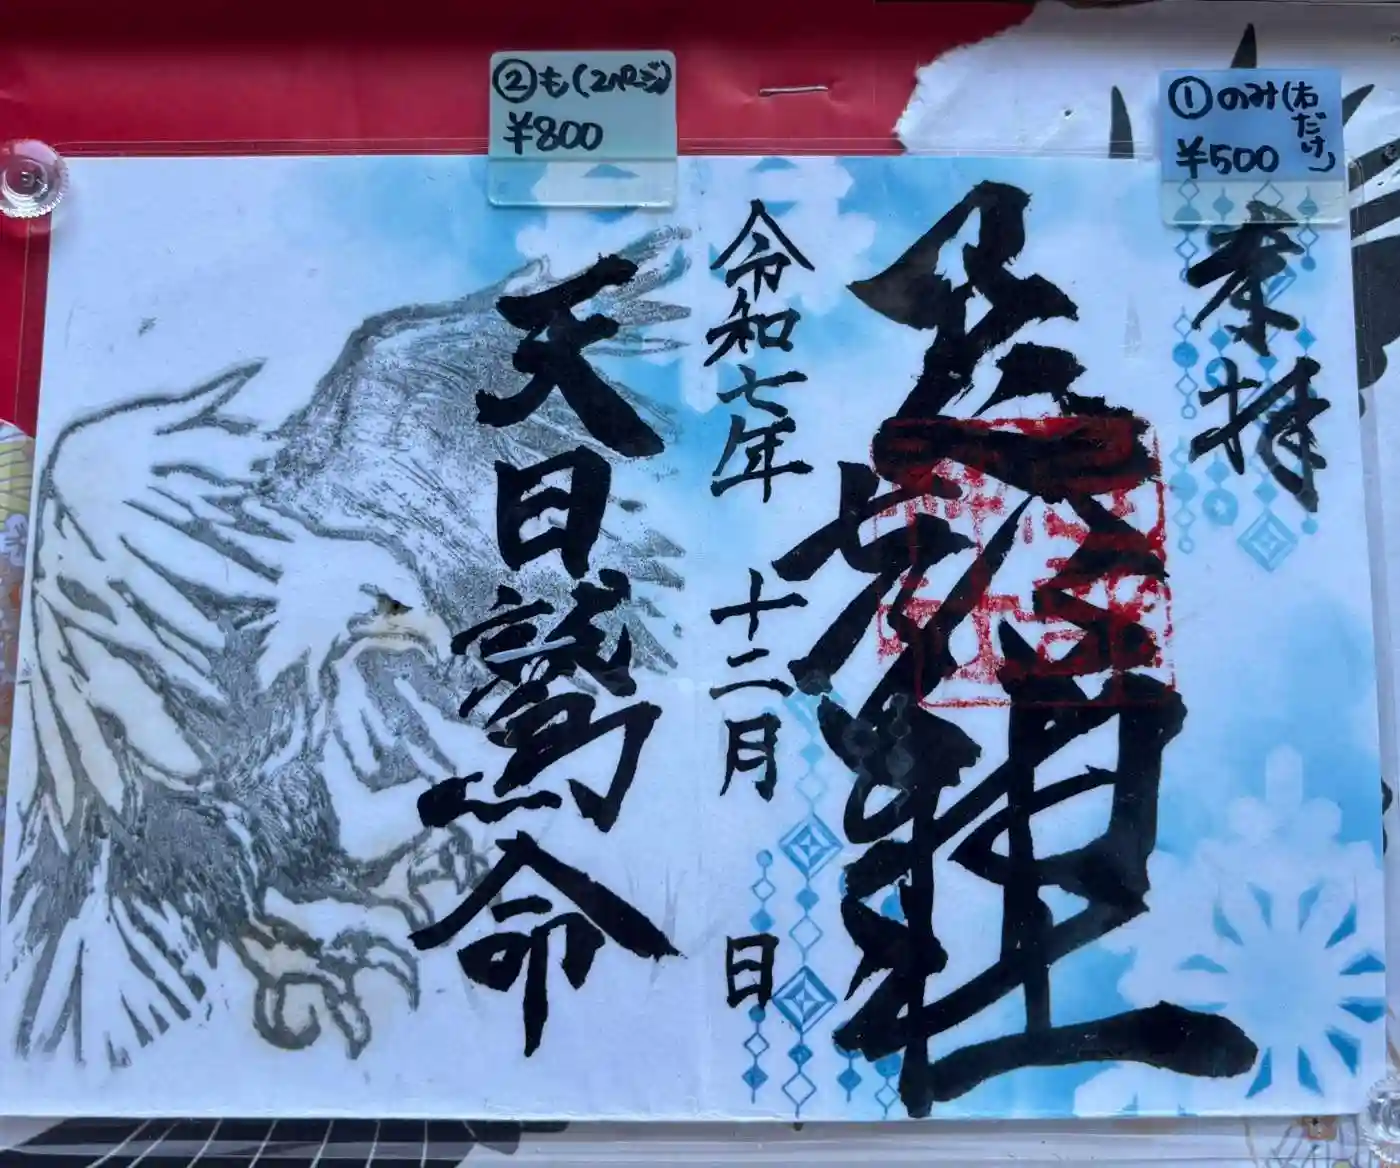 ②も(2ページ)
¥800
①のみ(右だけ)
¥500
奉拝
令和七年 十二月 日
天日鷲命